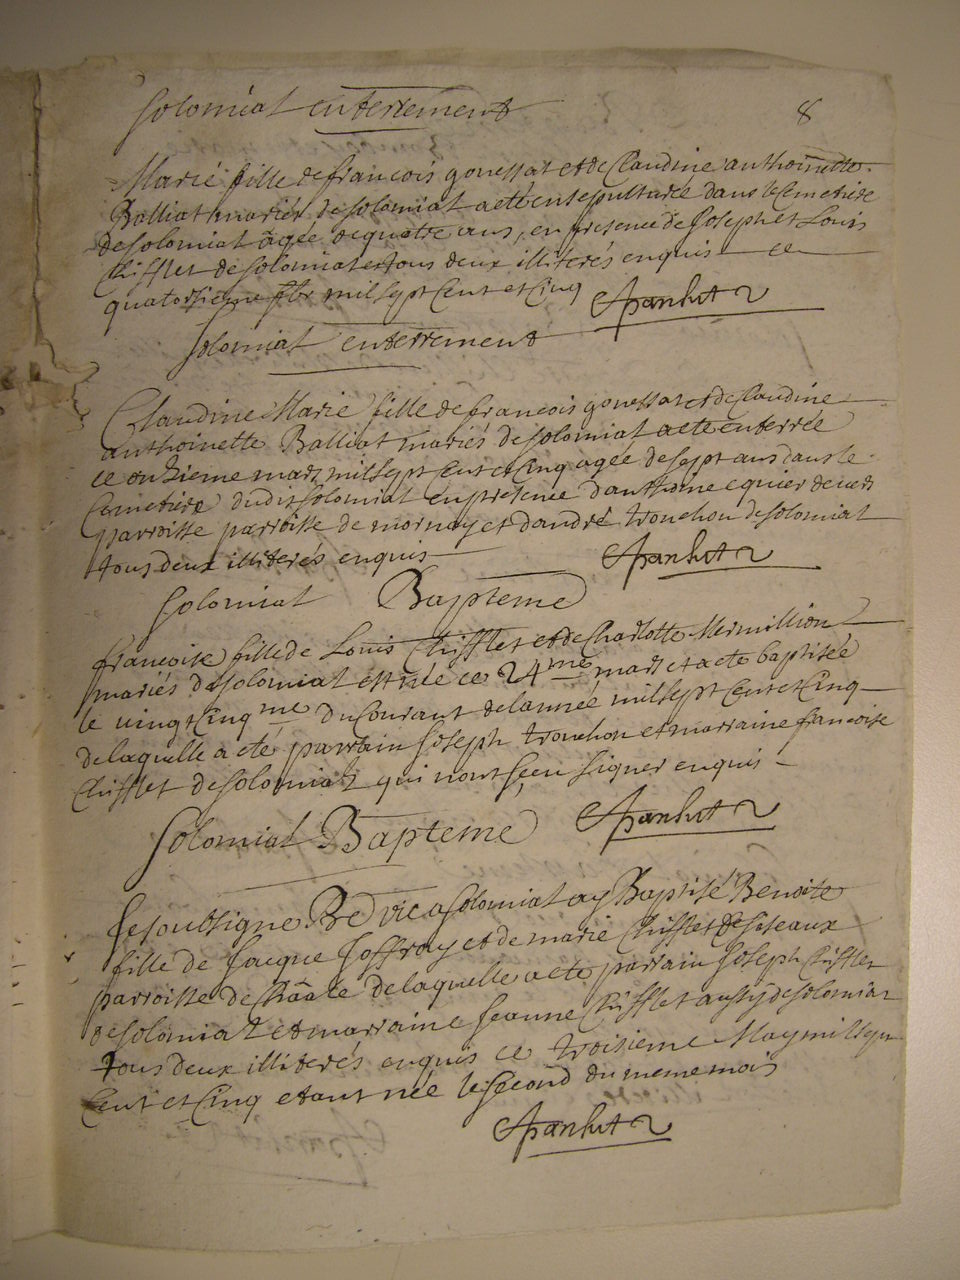 Solomiat enterrement
8
Marie fille de francois gonessat et de Claudine anthoinette
Balliat mariés de solomiat a eté ensepulturee dans le Cemetiere
de solomiat âgée de quatre ans, en presence de Joseph et Louis
Chifflet de solomiat tous deux illiterés enquis ce
quatorsieme mil sept Cent et Cinq
Solomiat enterrement
Claudine Marie fille de francois gonessat et de Claudine
anthoinette Balliat mariés de solomiat a ete enterrée
ce onzieme mars mil sept Cent et Cinq agée de sept ans dans le
Cemetiere dudit solomiat en presence d'anthoine
parroisse parroisse de mornay et d'andré tronchon de solomiat
tous deux illiterés enquis
Solomiat Bapteme
francoise fille de Louis Chifflet et de Charlotte Mermillion
mariés de solomiat est née ce 24me mars et a ete baptisée
le vingt Cinqme du Courant de lannée mil sept Cent et Cinq
de laquelle a eté parrain Joseph tronchon et marraine francoise
Chifflet de solomiat qui nont sceu signer enquis
Solomiat Bapteme
Je soussigne vic a solomiat ay Baptisé Benoite
fille de Jacque Joffray et de marie Chifflet
parroisse de de laquelle a ete parrain Joseph Chifflet
de solomiat et marraine Jeanne Chifflet aussy de solomiat
tous deux illiterés enquis ce troisieme May mil sept
Cent et Cinq etant née le second du meme mois